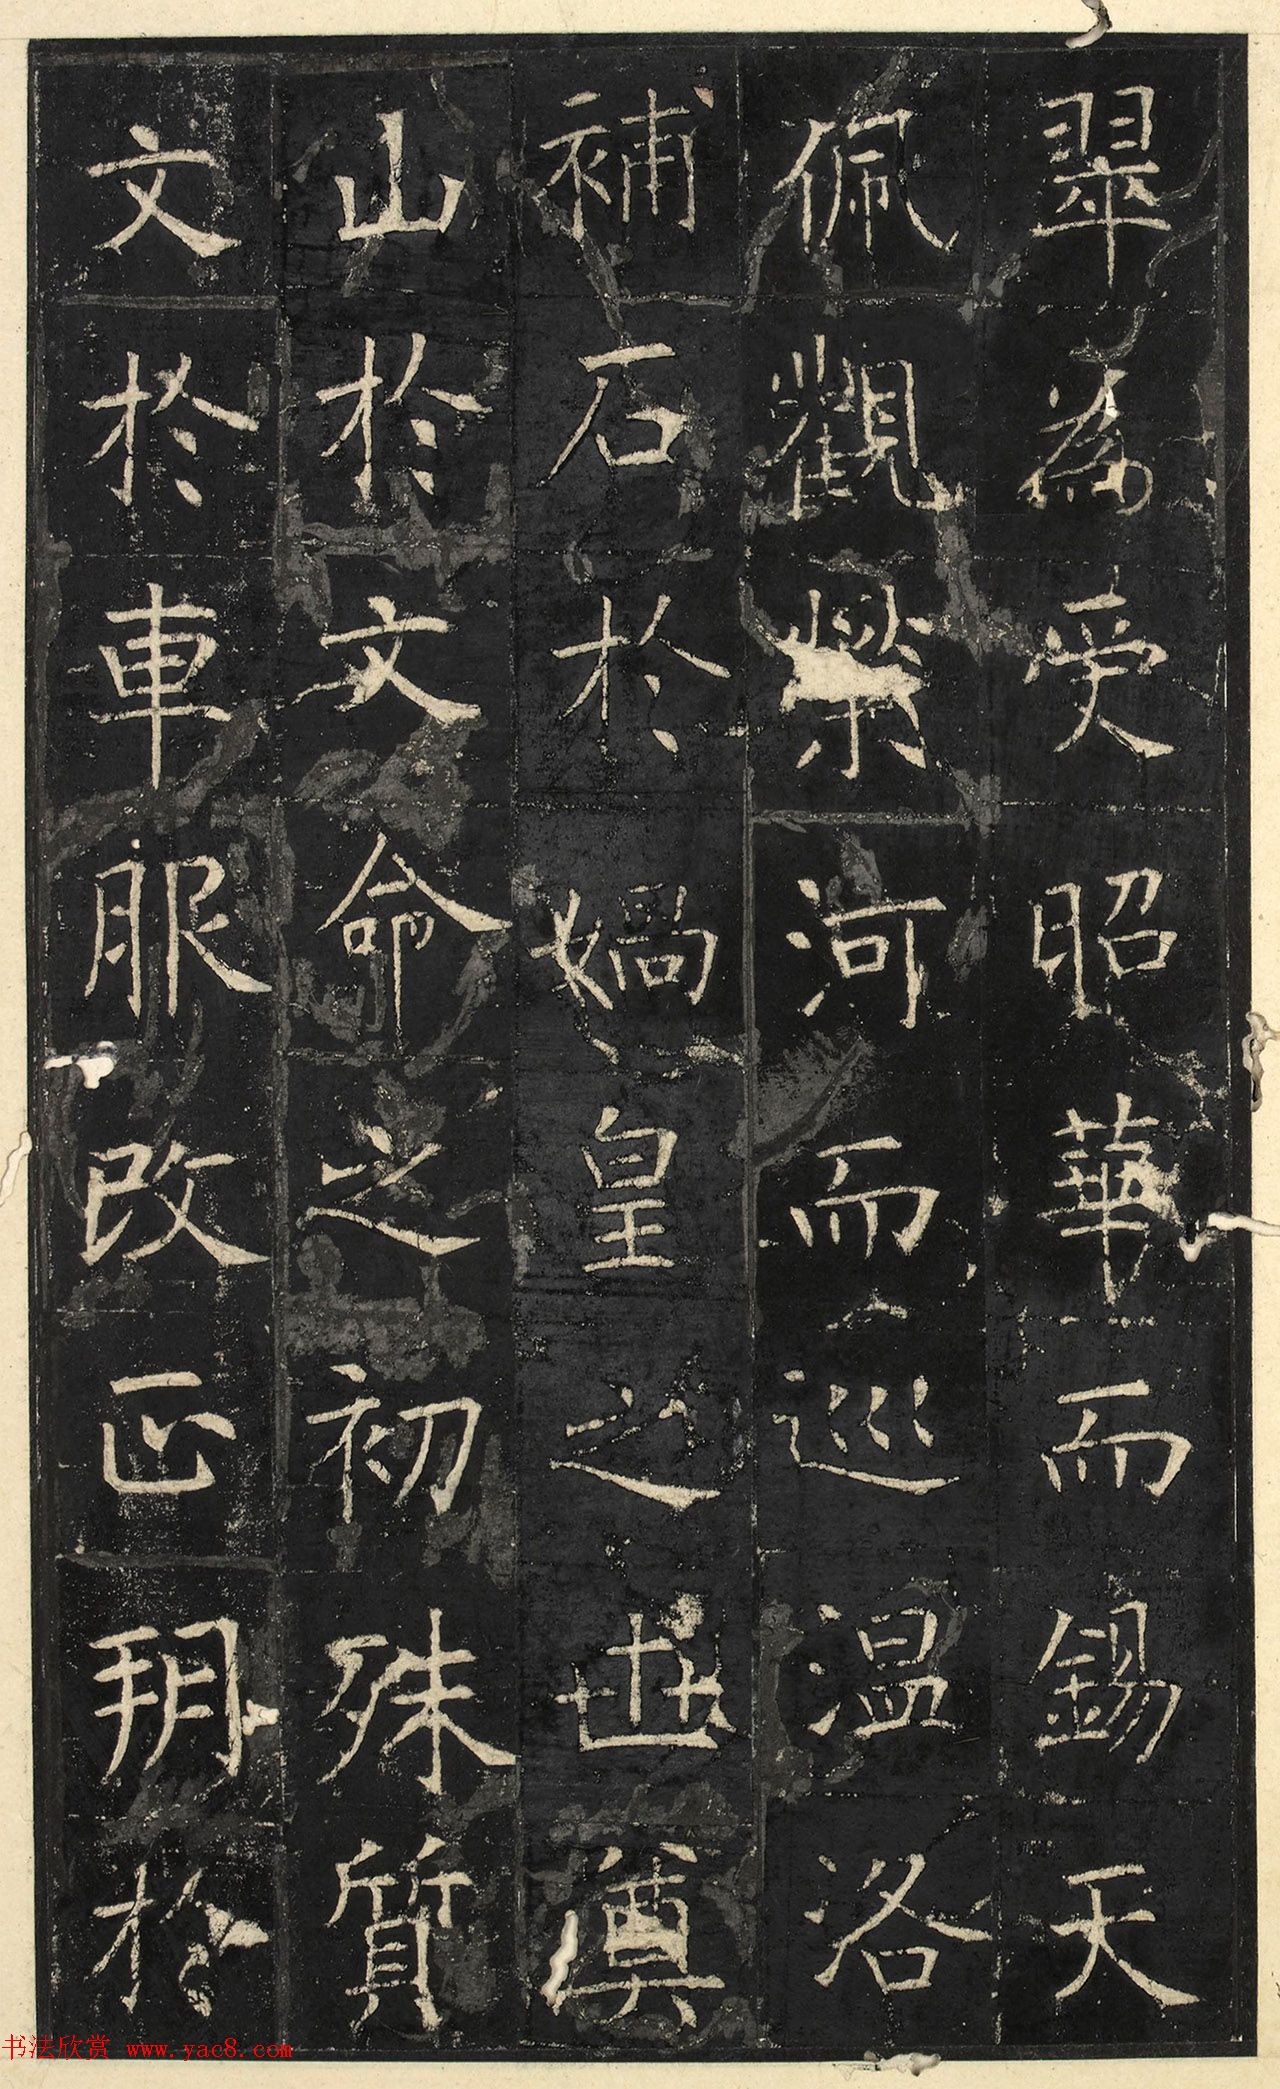 翠為受昭華而錫天
佩觀榮河而巡溫洛
補石於媧皇之世奠
山於文命之初殊質
文於車服改正玥於
书法欣赏 www.yac8.com